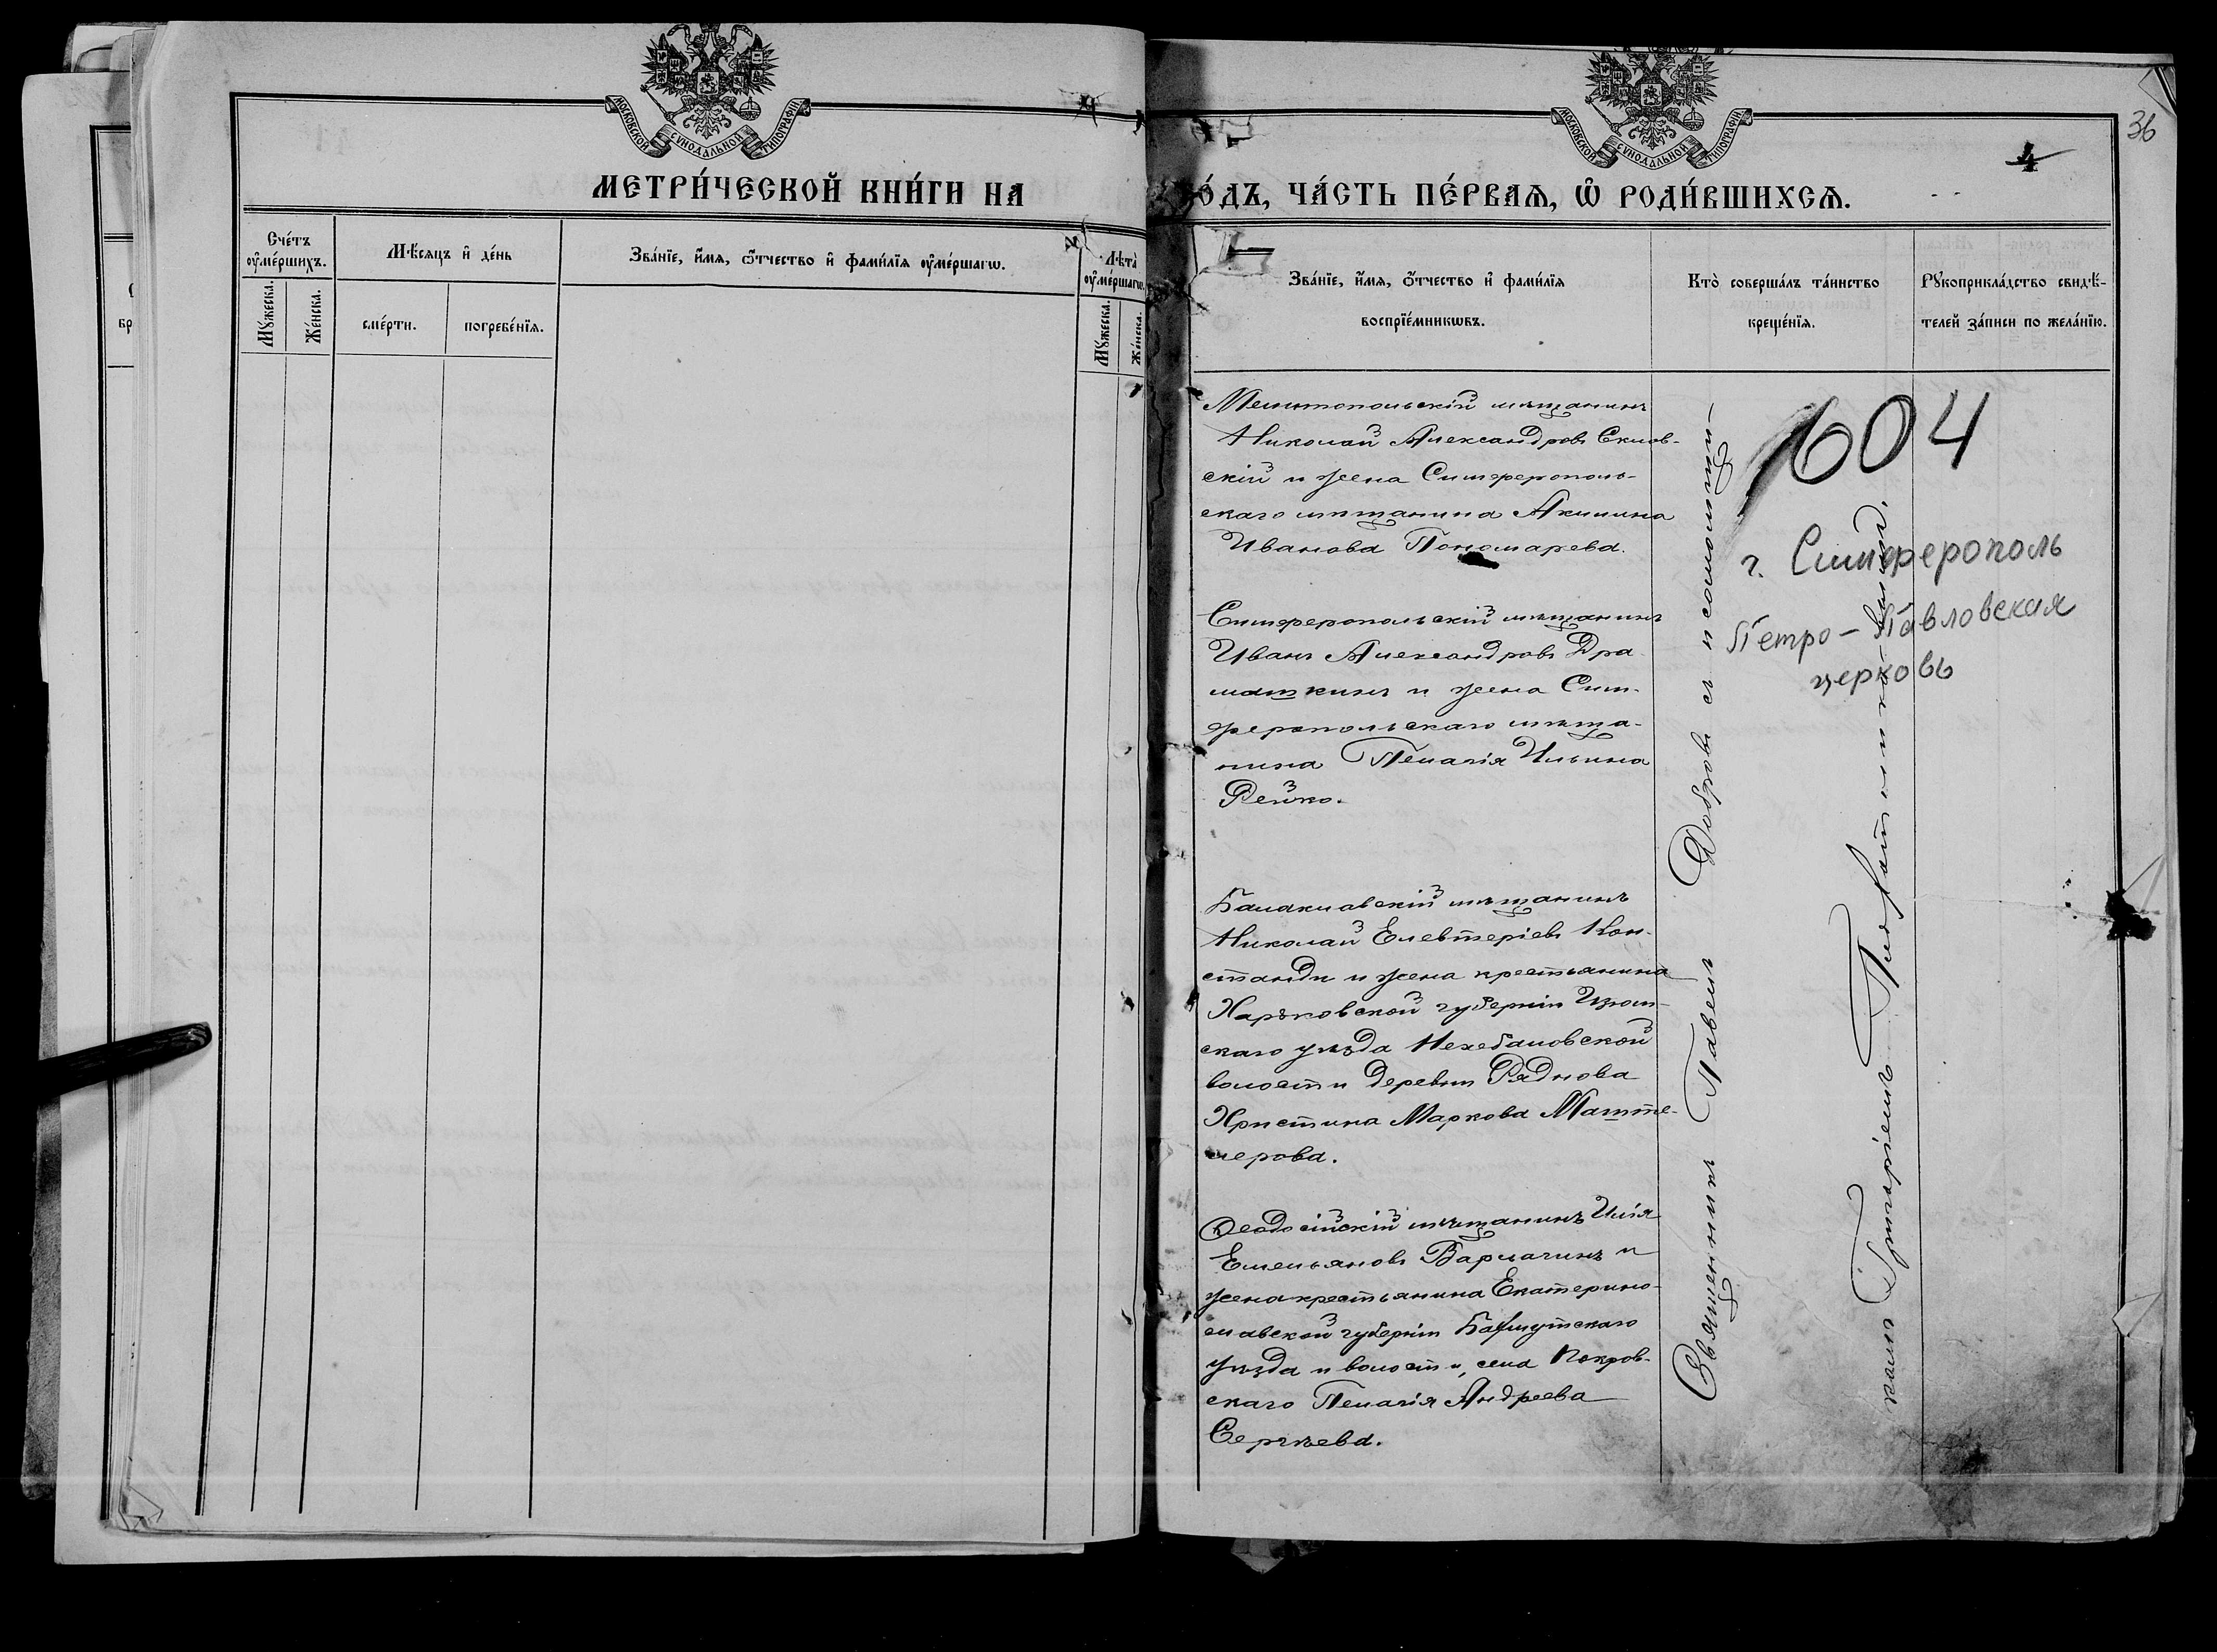 МОСКОВСКОЙ СѴНОДАЛЬНОЙ ТИПОГРАФІИ
МЕТРИ́ЧЕСКОЙ КНИ́ГИ НА
Сче́тъ ᲂу҆ме́ршихъ.
Мѣ́сяцъ и҆ де́нь
Зва́нїе, и҆́мѧ, ѻ҆́тчество и҆ фами́лїѧ ᲂу҆ме́ршагѡ.
Лѣта̀ ᲂу҆ме́ршагѡ.
Мꙋ́жеска.
Же́нска.
сме́рти.
погребе́нїѧ.
Мꙋ́жеска.
Же́нска.
МОСКОВСКОЙ СѴНОДАЛЬНОЙ ТИПОГРАФІИ
36
4
О́ДЪ, ЧА́СТЬ ПЕ́РВАѦ, Ѡ҆ РОДИ́ВШИХСѦ.
Зва́нїе, и҆́мѧ, ѻ҆́тчество и҆ фами́лїѧ
воспрїе́мникѡвъ.
Кто̀ соверша́лъ та́инство
креще́нїѧ.
Рꙋкоприкла́дство свидѣ́-
телей за́писи по жела́нїю.
Мелитопольскій мѣщанинъ
Николай Александровъ
скій и жена Симферополь-
скаго мѣщанина Акилина
Иванова Пономарева.
Симферопольскій мѣщанинъ
Иванъ Александровъ Дра
машкинъ и жена Сим-
феропольскаго мѣща-
нина Пелагія Ильина
Рейко.
Балаклавскій мѣщанинъ
Николай Елевтеріевъ Кон-
станди и жена крестьянина
Харьковской губерніи Изюм-
скаго уѣзда
волости деревни Ряднова
Христина Маркова Маште-
лерова.
Ѳеодосійскій мѣщанинъ Илія
Емельяновъ Варлагинъ и
жена крестьянина Екатерино-
славской губерніи Бахмутскаго
уѣзда и волости, села Покров-
скаго Пелагія Андреева
Сергѣева.
Священникъ Павелъ Добровъ съ псаломщи-
комъ Григоріемъ
604
г. Симферополь
Петро-Павловская
церковь